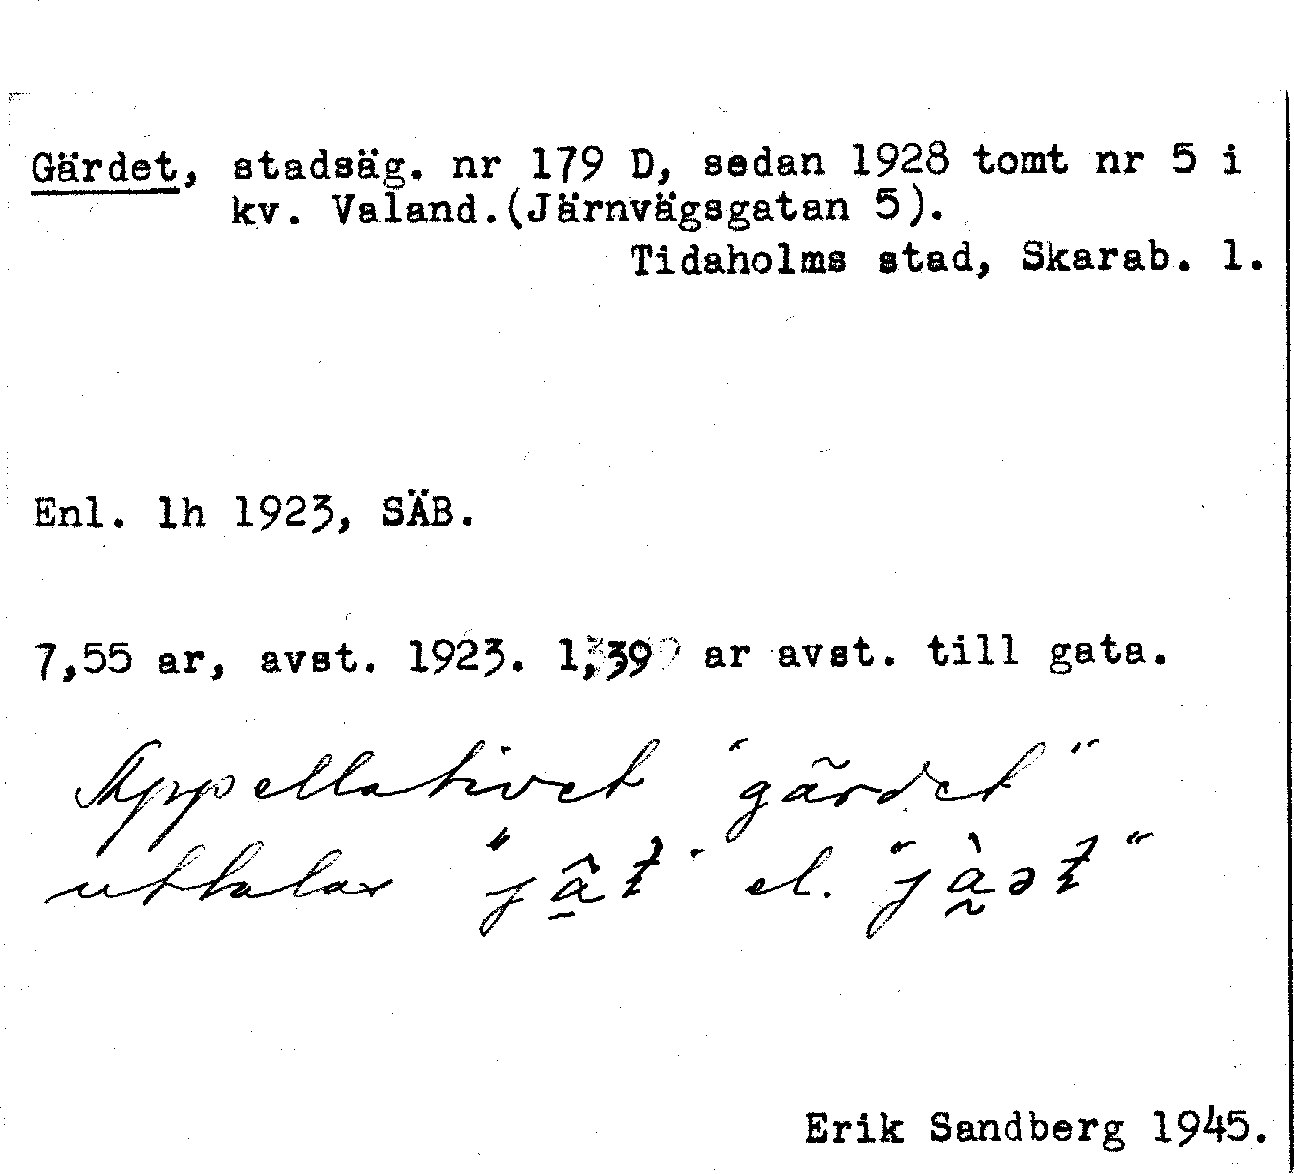 Gärdet, stadsäg. nr 179 D, sedan 1928 tomt nr 5 i
kv. Valand.(Järnvägsgatan 5).
Tidaholms stad, Skarab. l.
Enl. lh 1923, SÄB.
7,55 ar, avst. 1923. 1,39 ar avst. till gata.
Appellativet "gärdet"
uttalas "jâ̱ŧ" el. "jà̰əŧ"
Erik Sandberg 1945.